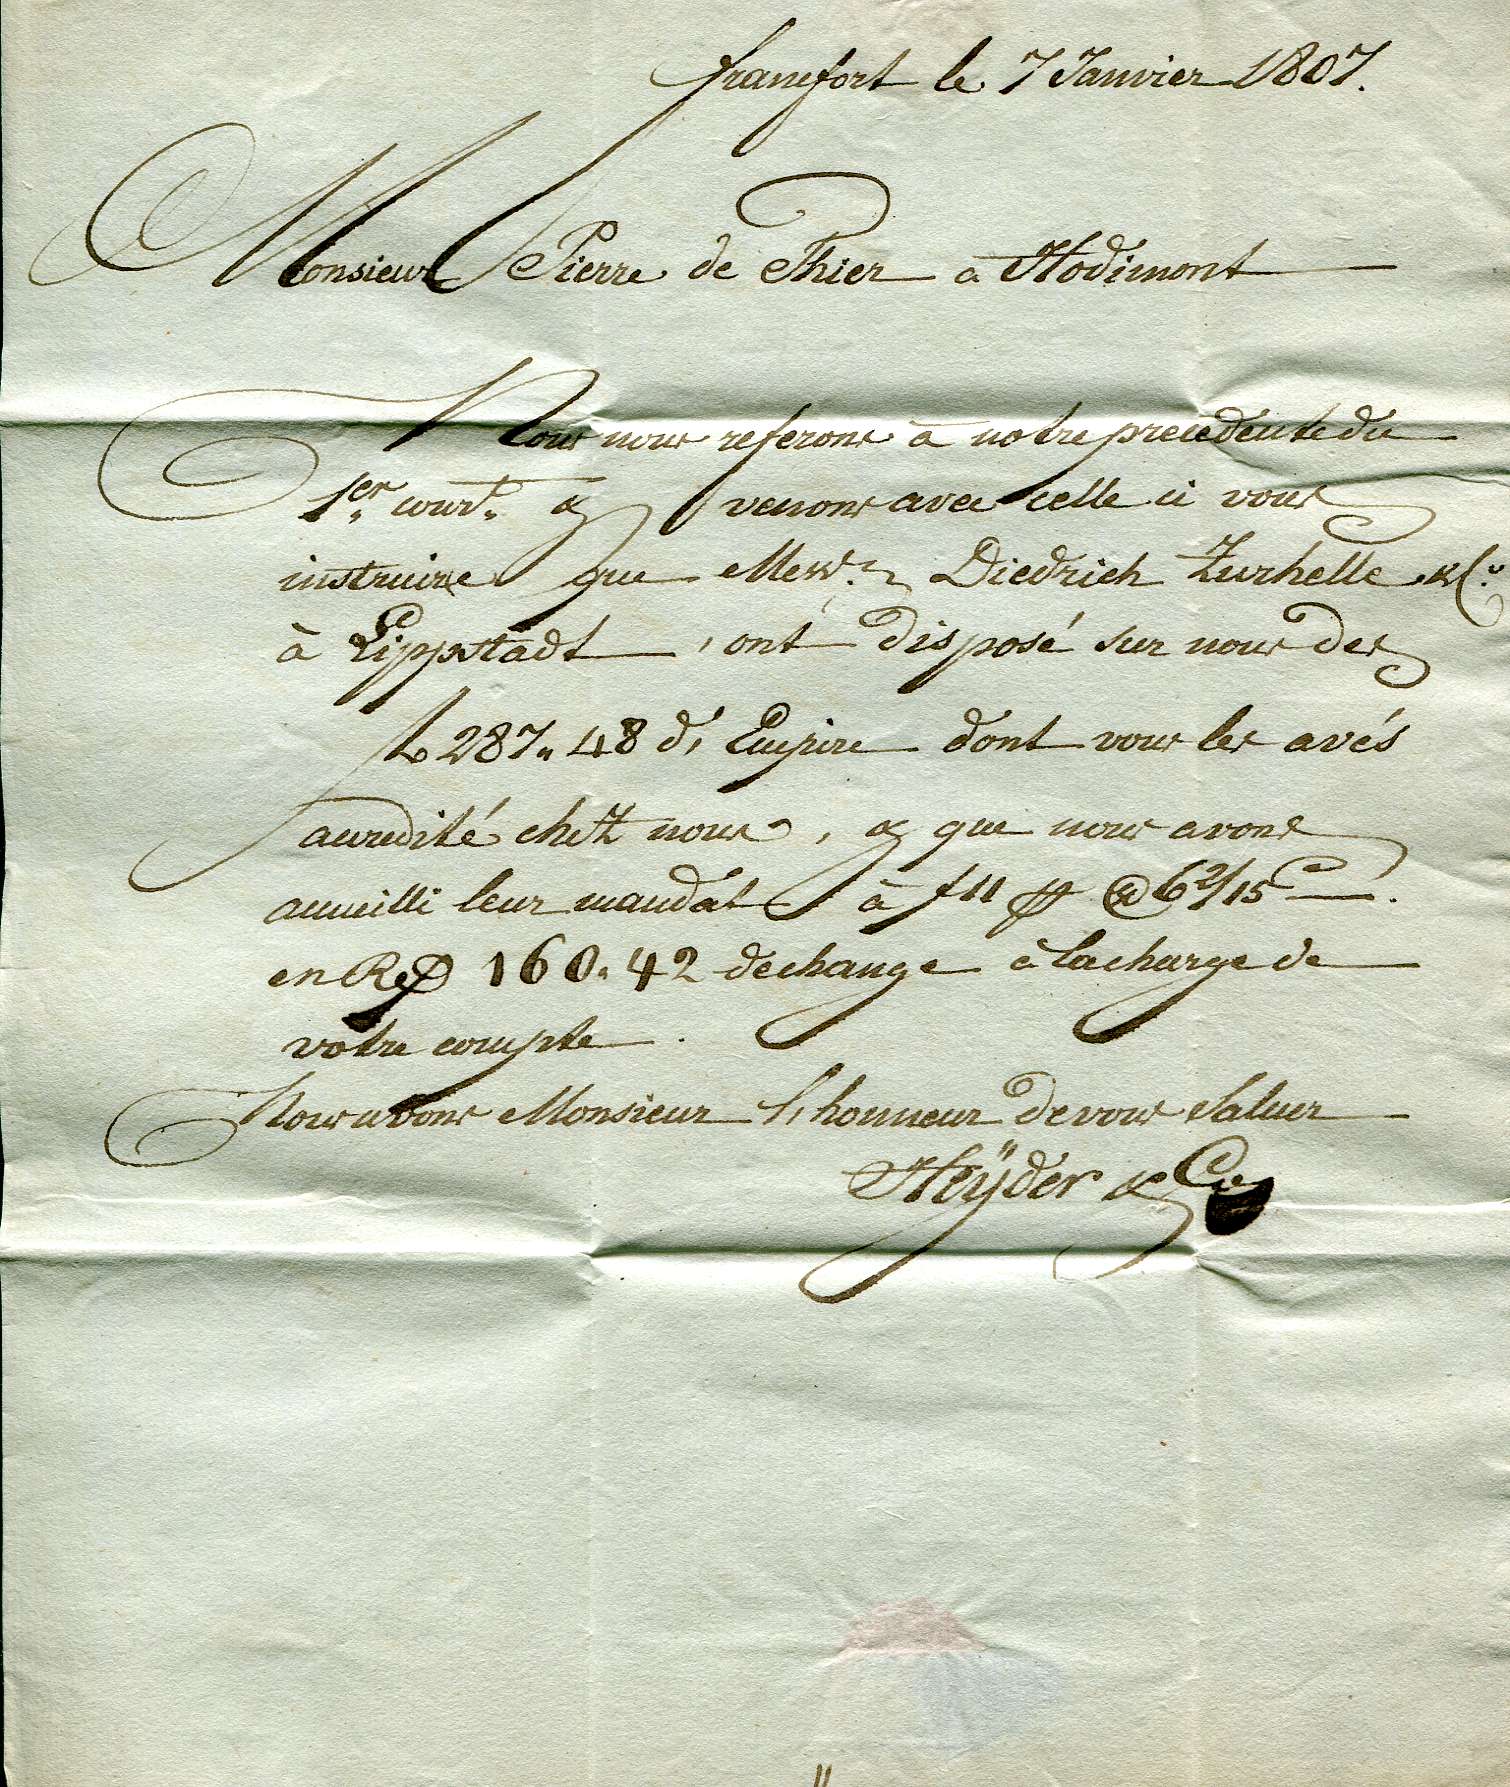 francfort le 7 Janvier 1807.
Monsieur Pierre de Thier à Hodimont
Nous nous referons à notre precedente du
1er court. & venons avec celle ci vous
instruire que Messrs. Diedrich Zurhelle & Co.
à Lippstadt, ont disposé sur nous des
287„48 d'Empire dont vous les avés
accredité chez nous, & que nous avons
accueilli leur mandat à f 11 @ 6 2/15
en 160„42 de change à la charge de
votre compte.
Nous avons Monsieur l'honneur de vous saluer
Heÿder & Cie